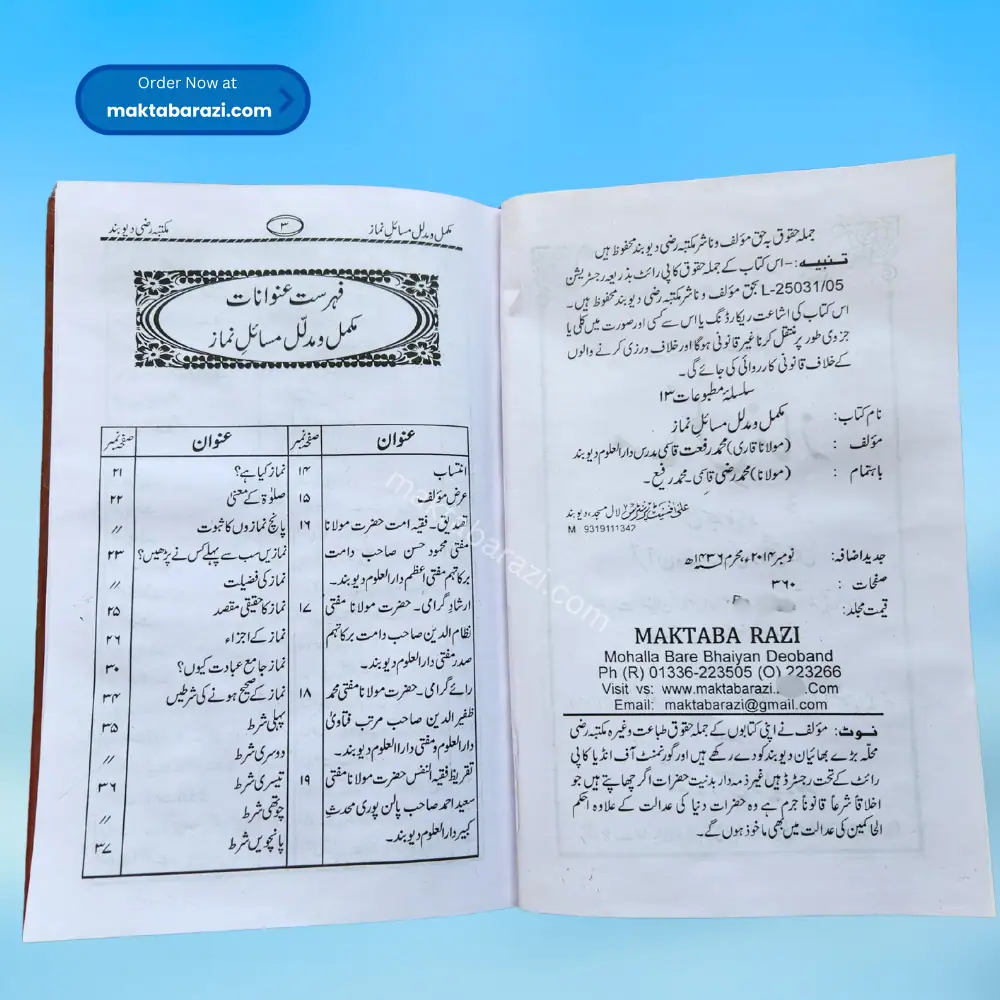 Order Now at
maktabarazi.com
جملہ حقوق بہ حق مؤلف و ناشر مکتبہ رضی دیوبند محفوظ ہیں
تنبیہ:- اس کتاب کے جملہ حقوق کاپی رائٹ بذریعہ رجسٹریشن
L-25031/05 بحق مؤلف و ناشر مکتبہ رضی دیوبند محفوظ ہیں۔
اس کتاب کی اشاعت ریکارڈنگ یا اس سے کسی اور صورت میں کلی یا
جزوی طور پر منتقل کرنا غیر قانونی ہوگا اور خلاف ورزی کرنے والوں
کے خلاف قانونی کارروائی کی جائے گی۔
سلسلۂ مطبوعات ۱۳
نام کتاب: مکمل و مدلل مسائل نماز
مؤلف : (مولانا قاری) محمد رفعت قاسمی مدرس دارالعلوم دیوبند
باہتمام : (مولانا) محمد رضی قاسمی۔ محمد رفیع۔
لال مسجد، دیوبند
M - 9319111342
جدید اضافہ: نومبر ۲۰۱۴ء، محرم ۱۴۳۶ھ
صفحات : ۳۶۰
قیمت مجلد:
MAKTABA RAZI
Mohalla Bare Bhaiyan Deoband
Ph (R) 01336-223505 (O) 223266
Visit vs: www.maktabarazi. .Com
Email: maktabarazi@gmail.com
نوٹ: مؤلف نے اپنی کتابوں کے جملہ حقوق طباعت وغیرہ مکتبہ رضی
محلہ بڑے بھائیان دیوبند کو دے رکھے ہیں اور گورنمنٹ آف انڈیا کاپی
رائٹ کے تحت رجسٹرڈ ہیں غیر ذمہ دار بدنیت حضرات اگر چھاپتے ہیں جو
اخلاقاً شرعاً قانوناً جرم ہے وہ حضرات دنیا کی عدالت کے علاوہ احکم
الحاکمین کی عدالت میں بھی ماخوذ ہوں گے۔
مکمل و مدلل مسائل نماز ۳ مکتبہ رضی دیوبند
فہرست عنوانات
مکمل و مدلّل مسائلِ نماز
عنوان صفحہ نمبر
انتساب ۱۴
عرض مؤلف ۱۵
تصدیق۔ فقیہ امت حضرت مولانا ۱۶
مفتی محمود حسن صاحب دامت
برکاتہم مفتی اعظم دارالعلوم دیوبند۔
ارشاد گرامی۔ حضرت مولانا مفتی ۱۷
نظام الدین صاحب دامت برکاتہم
صدر مفتی دارالعلوم دیوبند۔
رائے گرامی۔ حضرت مولانا مفتی محمد ۱۸
ظفیر الدین صاحب مرتب فتاویٰ
دارالعلوم و مفتی داراالعلوم دیوبند۔
تقریظ فقیہ النفس حضرت مولانا مفتی ۱۹
سعید احمد صاحب پالن پوری محدث
کبیر دارالعلوم دیوبند۔
عنوان صفحہ نمبر
نماز کیا ہے؟ ۲۱
صلوٰۃ کے معنیٰ ۲۲
پانچ نمازوں کا ثبوت //
نمازیں سب سے پہلے کس نے پڑھیں؟ ۲۳
نماز کی فضیلت //
نماز کا حقیقی مقصد ۲۵
نماز کے اجزاء ۲۶
نماز جامع عبادت کیوں؟ ۳۰
نماز کے صحیح ہونے کی شرطیں ۳۴
پہلی شرط ۳۵
دوسری شرط //
تیسری شرط ۳۶
چوتھی شرط //
پانچویں شرط ۳۷
maktabarazi.com